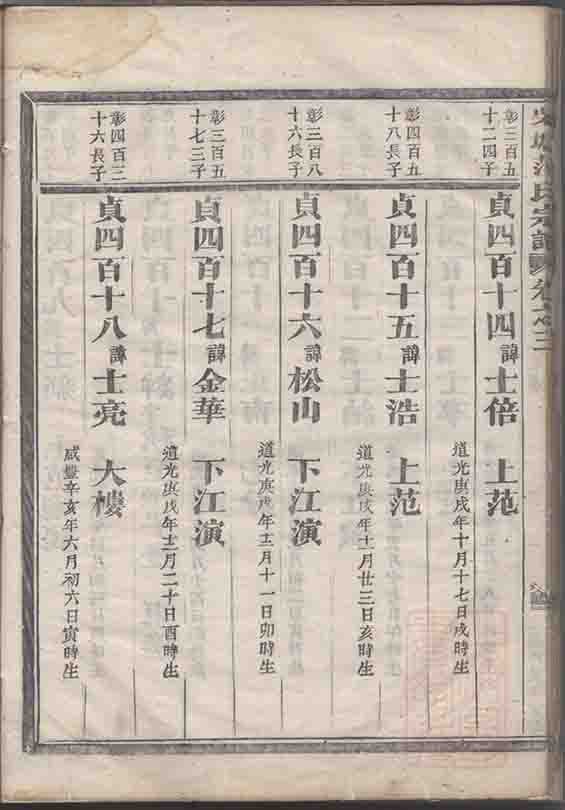 氏宗譜 卷之三
彰三百五
十二四子
貞四百十四 諱 士倍 上范
道光庚戌年十月十七日戌時生
彰四百五
十八長子
貞四百十五 諱 士浩 上范
道光庚戌年十一月廿三日亥時生
彰三百八
十六長子
貞四百十六 諱 松山 下江演
道光庚戌年十二月十一日卯時生
彰三百五
十七三子
貞四百十七 諱 金華 下江演
道光庚戌年十二月二十日酉時生
彰四百三
十六長子
貞四百十八 諱 士亮 大樓
咸豐辛亥年六月初六日寅時生